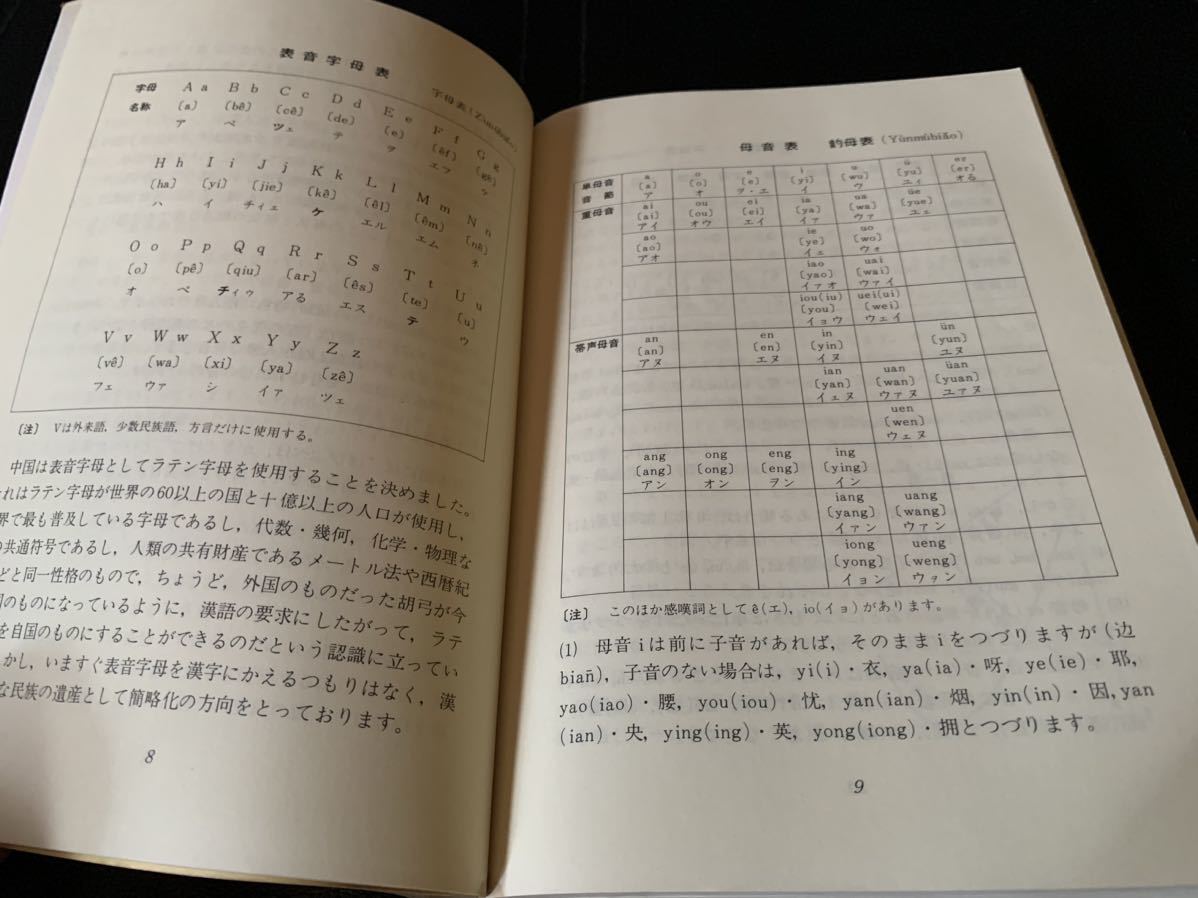 表音字母表
字母表(Zìmǔbiǎo)
字母 A a B b C c D d E e F f G g
名称 〔a〕 〔bê〕 〔cê〕 〔de〕 〔e〕 〔êf〕 〔gê〕
ア ベ ツェ テ ヲ エフ
H h I i J j K k L l M m N n
〔ha〕 〔yi〕 〔jie〕 〔kê〕 〔êl〕 〔êm〕 〔nê〕
ハ イ チィェ ケ エル エム ネ
O o P p Q q R r S s T t U u
〔o〕 〔pê〕 〔qiu〕 〔ar〕 〔ês〕 〔te〕 〔u〕
オ ペ チィゥ アる エス テ ウ
V v W w X x Y y Z z
〔vê〕 〔wa〕 〔xi〕 〔ya〕 〔zê〕
フェ ウァ シ イァ ツェ
〔注〕 Vは外来語，少数民族語，方言だけに使用する。
中国は表音字母としてラテン字母を使用することを決めました。
それはラテン字母が世界の60以上の国と十億以上の人口が使用し，
界で最も普及している字母であるし，代数・幾何，化学・物理な
の共通符号であるし，人類の共有財産であるメートル法や西暦紀
どと同一性格のもので，ちょうど，外国のものだった胡弓が今
国のものになっているように，漢語の要求にしたがって，ラテ
を自国のものにすることができるのだという認識に立ってい
かし，いますぐ表音字母を漢字にかえるつもりはなく，漢
な民族の遺産として簡略化の方向をとっております。
8
母音表 韵母表(Yùnmǔbiǎo)
単母音 a o e i u ü er
音節 〔a〕 〔o〕 〔e〕 〔yi〕 〔wu〕 〔yu〕 〔er〕
ア オ ヲ・エ イ ウ ユィ オる
重母音 ai ou ei ia ua üe
〔ai〕 〔ou〕 〔ei〕 〔ya〕 〔wa〕 〔yue〕
アイ オウ エイ イァ ウァ ユェ
ao ie uo
〔ao〕 〔ye〕 〔wo〕
アオ イェ ウォ
iao uai
〔yao〕 〔wai〕
イァオ ウァイ
iou(iu) uei(ui)
〔you〕 〔wei〕
イョウ ウェイ
帯声母音 an en in ün
〔an〕 〔en〕 〔yin〕 〔yun〕
アヌ エヌ イヌ ユヌ
ian uan üan
〔yan〕 〔wan〕 〔yuan〕
イェヌ ウァヌ ユァヌ
uen
〔wen〕
ウェヌ
ang ong eng ing
〔ang〕 〔ong〕 〔eng〕 〔ying〕
アン オン ヲン イン
iang uang
〔yang〕 〔wang〕
イァン ウァン
iong ueng
〔yong〕 〔weng〕
イョン ウォン
〔注〕 このほか感嘆詞としてê(エ)，io(イョ)があります。
(1) 母音iは前に子音があれば，そのままiをつづりますが(边
biān)，子音のない場合は，yi(i)・衣，ya(ia)・呀，ye(ie)・耶，
yao(iao)・腰，you(iou)・忧，yan(ian)・烟，yin(in)・因，yan
(ian)・央，ying(ing)・英，yong(iong)・拥とつづります。
9